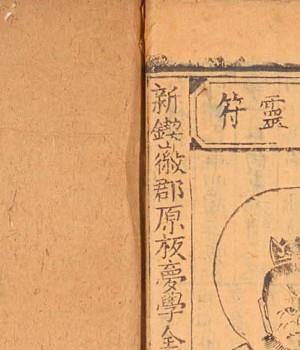 靈符
新鍥徽郡原板夢學全